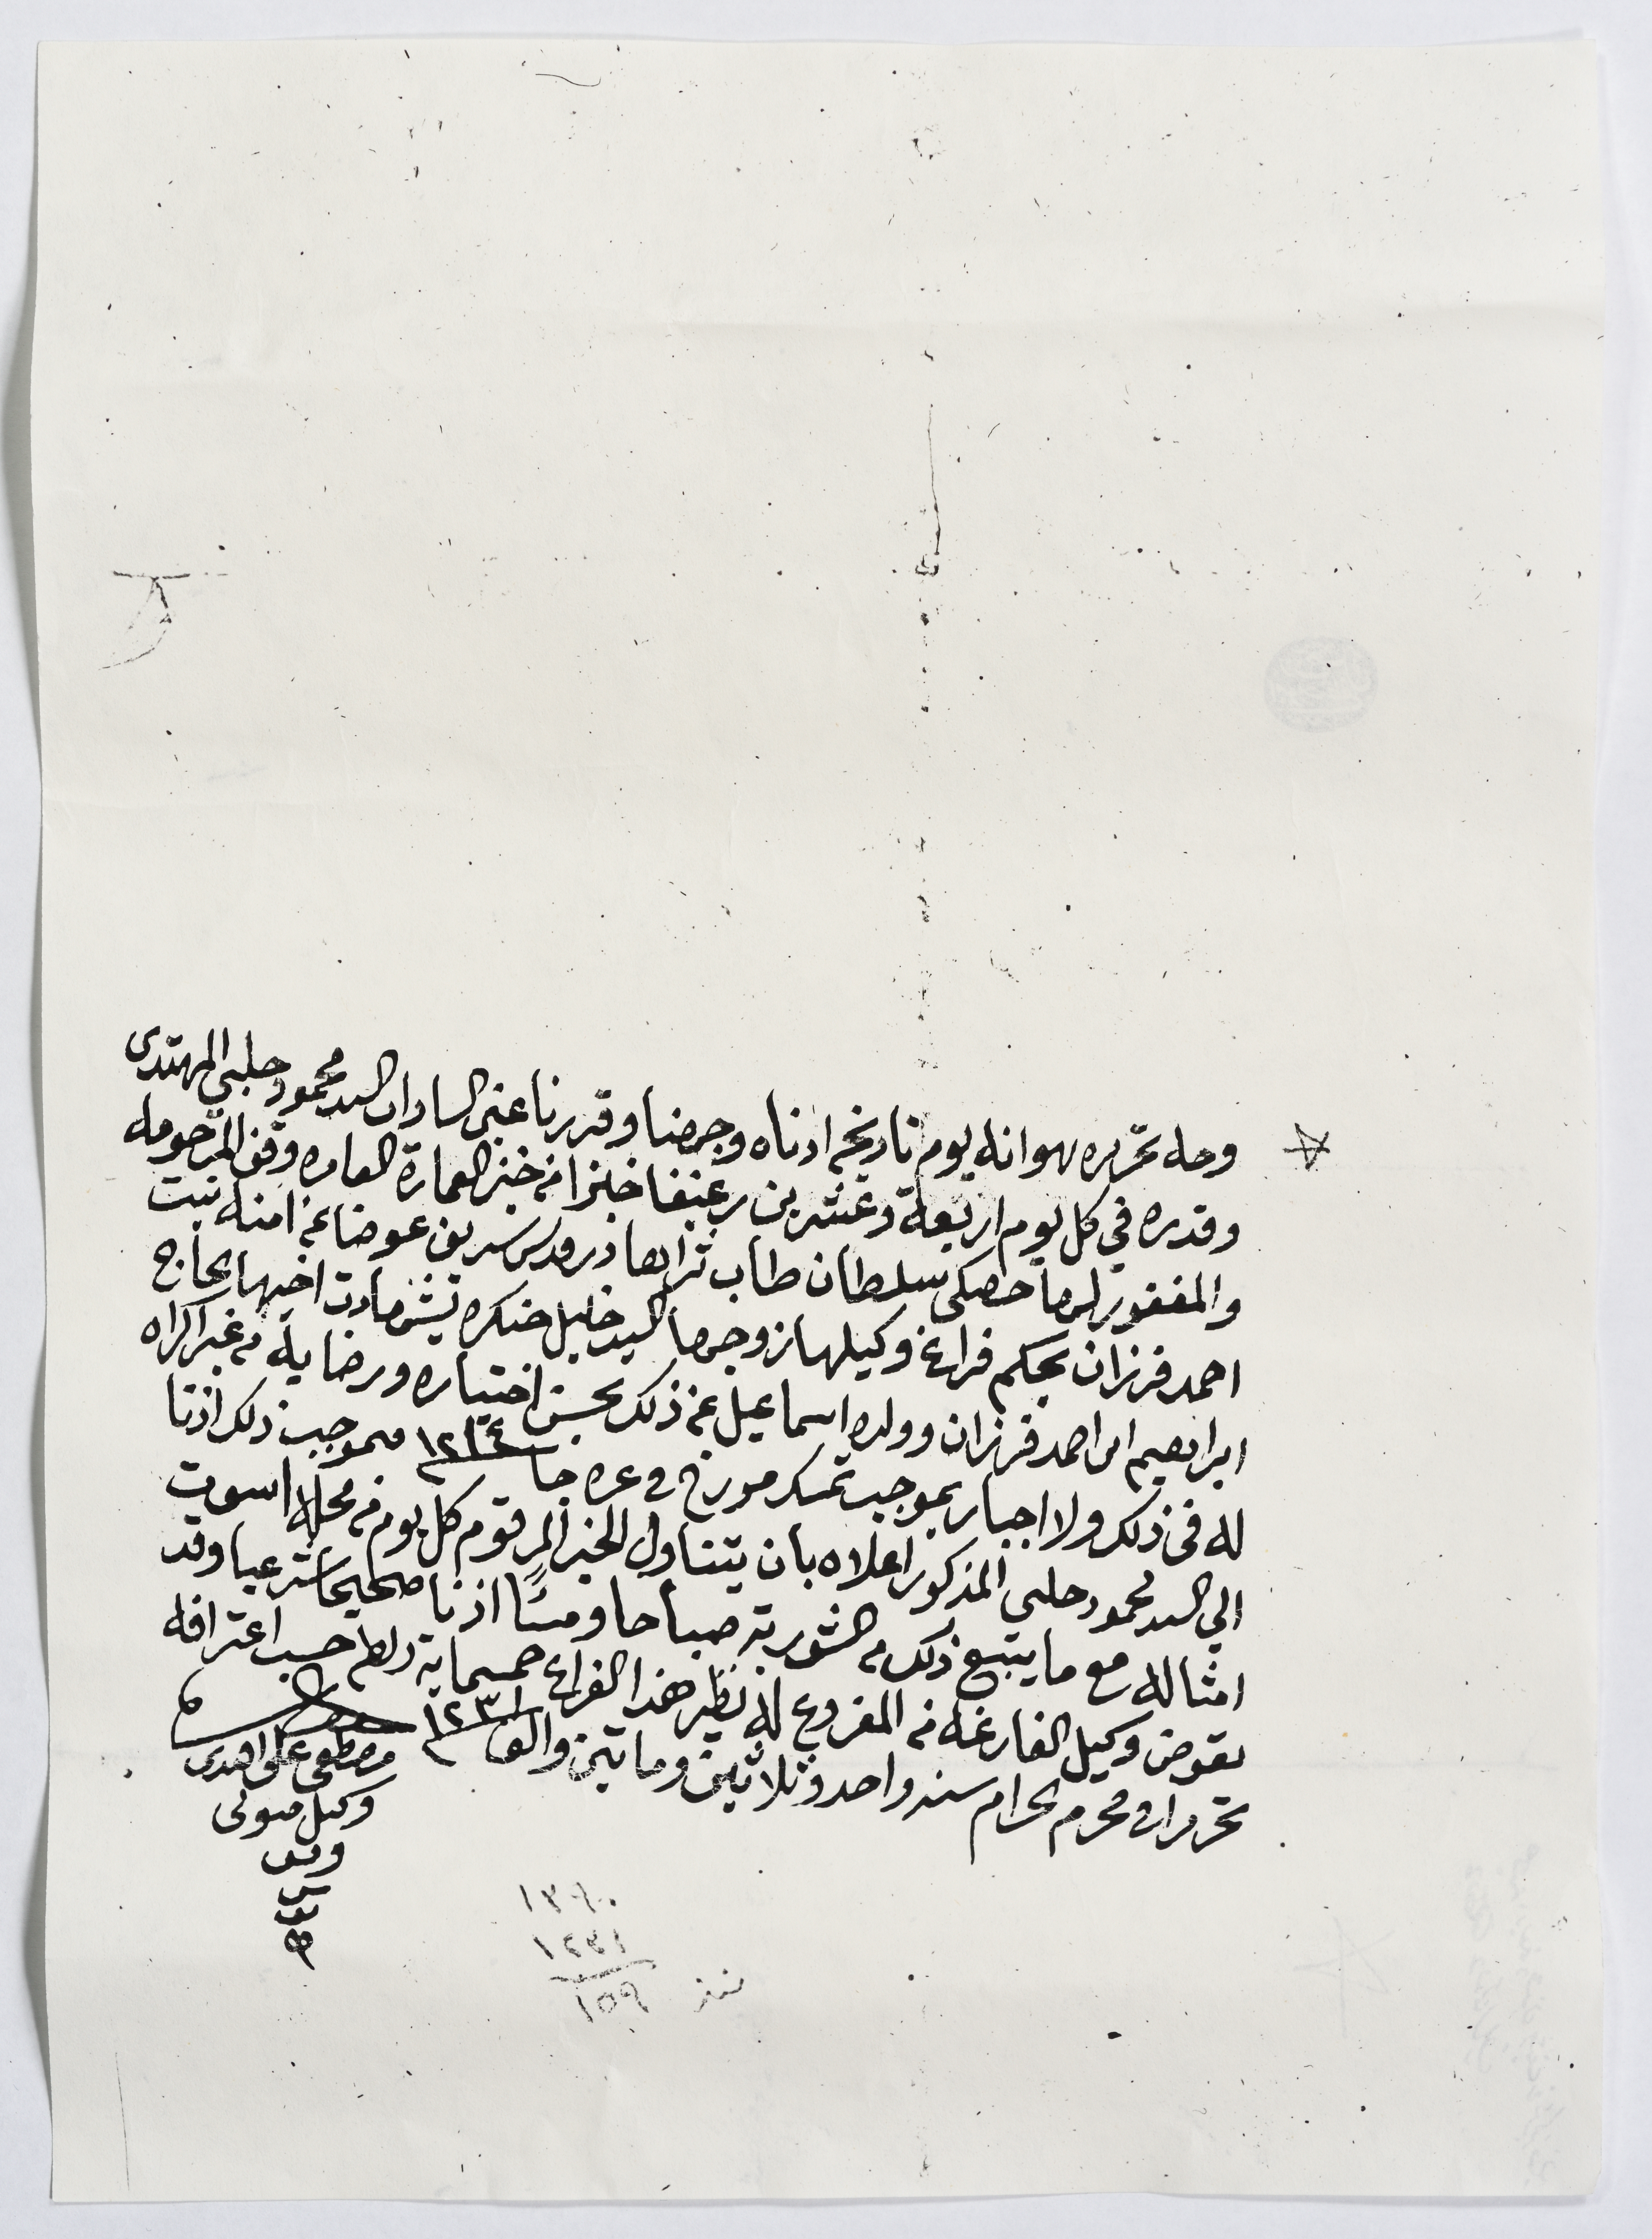 وجه تحريره هو انه يوم تاريخه ادناه وجهنا وقررنا عين السادات السيد محمود جلبي المهتدى
وقدره في كل يوم اربعة وعشرين رغيفا خبزا من خبز العمارة العامره وقف المرحومه
والمغفور لها خصكى سلطان طاب ثراها در قدس شريف عوضا عن امنه بنت
احمد فرزان بحكم فراغ وكيلها زوجها السيد خليل بشهادت اخيها الحاج
ابراهيم ابن احمد فرزان وولده اسماعيل عن ذلك بحسن اختياره ورضايه من غير اكراه
له في ذلك ولا اجبار بموجب تمسك مورخ في غره جا ١٢٢٤ فبموجب ذلك اذنا
الي السيد محمود جلبي المذكور اعلاه بان يتناول الخبز المرقوم كل يوم من محله اسوت
امثاله مع ما يتبع ذلك من الشوربة صباحا ومسًا اذنا صحيحا شرعيا وقد
تعوض وكيل الفارغه من المفروغ له نظير هذا الفراغ خمسماية زلطه حسب اعترافه
تحريرا في محرم الحرام سنه واحد وثلاثين وماتين والف ١٢٣١
مصطفى على افندى
وكيل متولى
وقف
١٣٩٠
١٢٣١
١٥٩